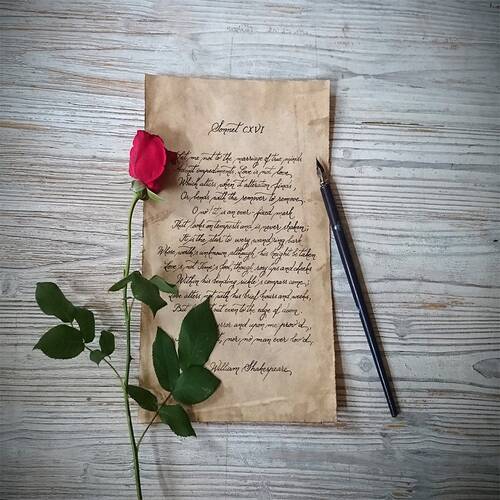 Sonnet CXVI
Let me not to the marriage of true minds
Admit impediments, Love is not love
Which alters when it alteration finds,
Or bends with the remover to remove;
O no! it is an ever-fixed mark
That looks on tempests and is never shaken;
It is the star to every wand'ring bark
Whose worth's unknown, although his height be taken
Love's not Time's fool, though rosy lips and cheeks
Within his bending sickle's compass come;
Love alters not with his brief hours and weeks,
But out even to the edge of doom
error and upon me prov'd,
nor no man ever lov'd,
William Shakespeare